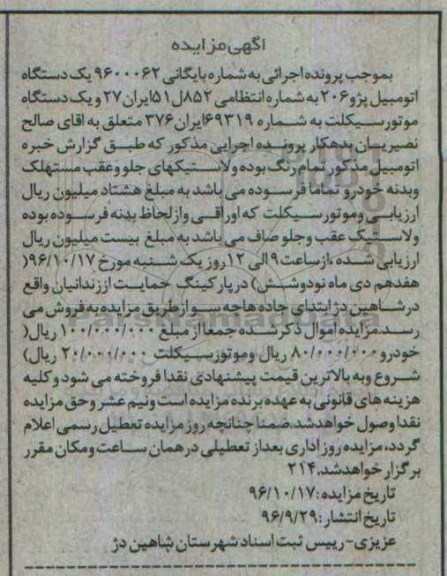 آگهی مزایده
بموجب پرونده اجرائی به شماره بایگانی ۹۶۰۰۰۶۲ یک دستگاه
اتومبیل پژو ۲۰۶ به شماره انتظامی ۸۵۲ل۵۱ایران۲۷ و یک دستگاه
موتور سیکلت به شماره ۶۹۳۱۹ایران۳۷۶ متعلق به اقای صالح
نصیریسان بدهکار پرونده اجرایی مذکور که طبق گزارش خبره
اتومبیل مذکور تمام رنگ بوده ولاستیکهای جلو وعقب مستهلک
وبدنه خودرو تماما فرسوده می باشد به مبلغ هشتاد میلیون ریال
ارزیابی وموتور سیکلت که اوراقی واز لحاظ بدنه فرسوده بوده
ولاستیک عقب وجلو صاف می باشد به مبلغ بیست میلیون ریال
ارزیابی شده ،از ساعت ۹ الی ۱۲ روز یک شنبه مورخ ۹۶/۱۰/۱۷(
هفدهم دی ماه نودوشش) در پارکینگ حمایت از زندانیان واقع
در شاهین دژ ابتدای جاده هاچه سو از طریق مزایده به فروش می
رسد.مزایده اموال ذکر شده جمعا از مبلغ ۱۰۰/۰۰۰/۰۰۰ ریال(
خودرو ۸۰/۰۰۰/۰۰۰ ریال وموتور سیکلت ۲۰/۰۰۰/۰۰۰ ریال)
شروع وبه بالاترین قیمت پیشنهادی نقدا فروخته می شود وکلیه
هزینه های قانونی به عهده برنده مزایده است ونیم عشر وحق مزایده
نقدا وصول خواهدشد.ضمنا چنانچه روز مزایده تعطیل رسمی اعلام
گردد، مزایده روز اداری بعداز تعطیلی در همان ساعت ومکان مقرر
برگزار خواهدشد.۲۱۴
تاریخ مزایده:۹۶/۱۰/۱۷
تاریخ انتشار:۹۶/۹/۲۹
عزیزی-رییس ثبت اسناد شهرستان شاهین دژ